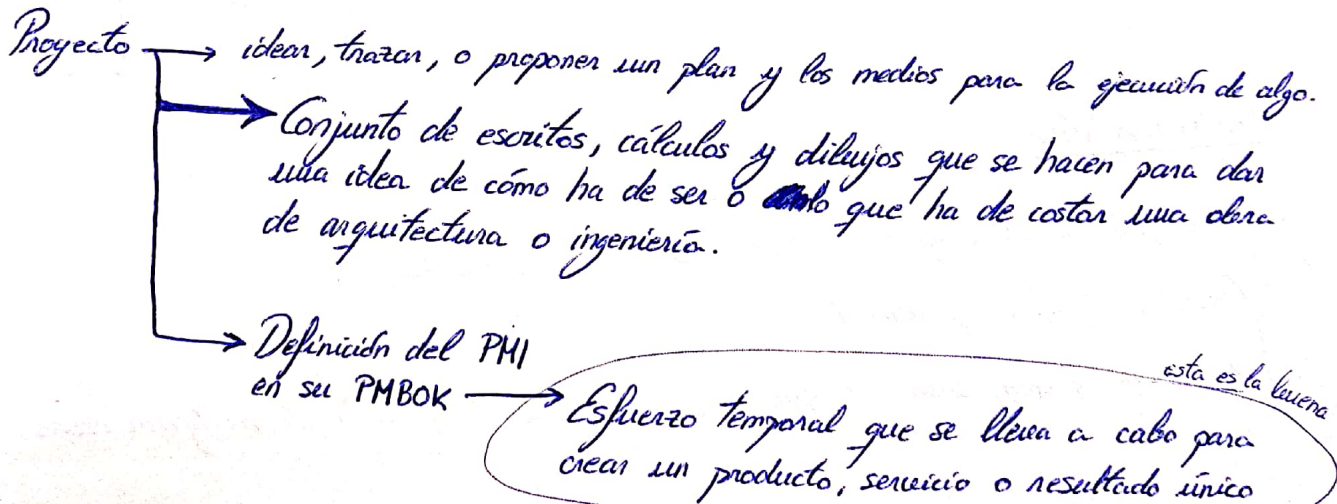 Proyecto → idear, trazar, o proponer un plan y los medios para la ejecución de algo.
Conjunto de escritos, cálculos y dibujos que se hacen para dar
una idea de cómo ha de ser o lo que ha de costar una obra
de arquitectura o ingeniería.
Definición del PMI
en su PMBOK →
esta es la buena
Esfuerzo temporal que se lleva a cabo para
crear un producto, servicio o resultado único